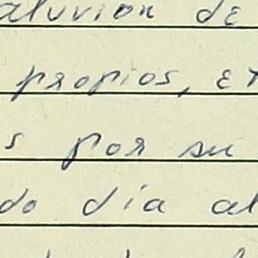 aluvión de
propios, et
s por su
do día al